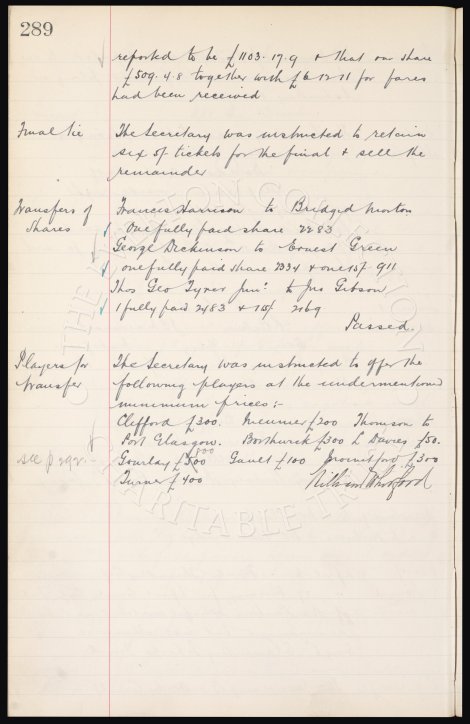 289
reported to be £1103.17.9 & that our share
£509.4.8 together with £6-12-11 for fares
had been received
Final tie
The Secretary was instructed to retain
six 5/- tickets for the final & sell the
remainder
Transfers of
Shares
Francis Harrison to Bridged Morton
One fully paid share 2283
George Dickinson to Ernest Green
one fully paid share 2334 & one 15/- 911
Thos Geo Tyrer Junr to Jno Gibson
1 fully paid 2483 & 1 15/- 2169
Passed.
Players for
transfer
The Secretary was instructed to offer the
following players at the undermentioned
minimum prices:-
Clifford £300. Meunier £200 Thomson to
Port Glasgow. Borthwick £300 L Davies £50.
see p 292.
800
Gourlay £500 Gault £100 £300
Turner £400
THE EVERTON COLLECTION
CHARITABLE TRUST